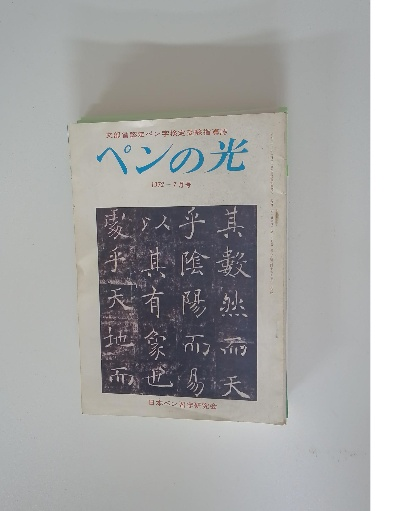 文部省認定ペン字検定試験指導誌
ペンの光
1972-7月号
其數然而天
乎陰陽而易
以其有象也
處乎天地而
日本ペン習字研究会